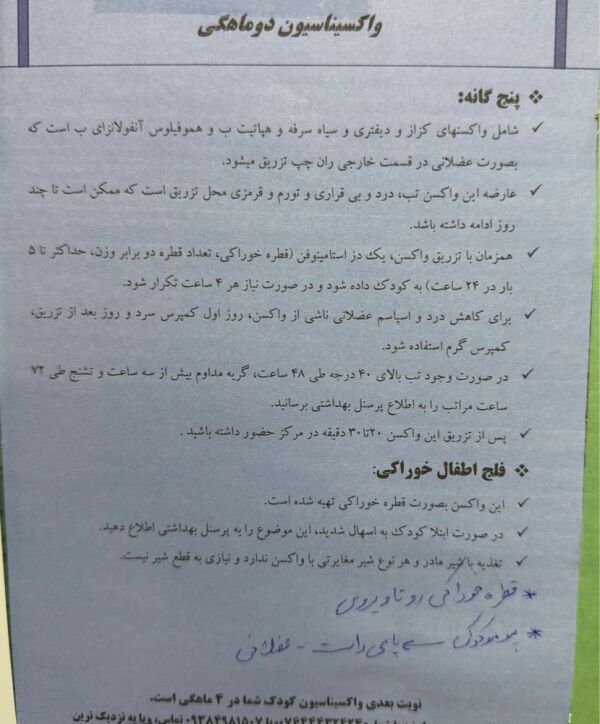 واکسیناسیون دوماهگی
❖ پنج گانه:
✓ شامل واکسنهای کزاز و دیفتری و سیاه سرفه و هپاتیت ب و هموفیلوس آنفولانزای ب است که
بصورت عضلانی در قسمت خارجی ران چپ تزریق میشود.
✓ عارضه این واکسن تب، درد و بی قراری و تورم و قرمزی محل تزریق است که ممکن است تا چند
روز ادامه داشته باشد.
✓ همزمان با تزریق واکسن، یک دز استامینوفن (قطره خوراکی، تعداد قطره دو برابر وزن، حداکثر تا ۵
بار در ۲۴ ساعت) به کودک داده شود و در صورت نیاز هر ۴ ساعت تکرار شود.
✓ برای کاهش درد و اسپاسم عضلانی ناشی از واکسن، روز اول کمپرس سرد و روز بعد از تزریق،
کمپرس گرم استفاده شود.
✓ در صورت وجود تب بالای ۴۰ درجه طی ۴۸ ساعت، گریه مداوم بیش از سه ساعت و تشنج طی ۷۲
ساعت مراتب را به اطلاع پرسنل بهداشتی برسانید.
✓ پس از تزریق این واکسن ۲۰تا۳۰ دقیقه در مرکز حضور داشته باشید .
❖ فلج اطفال خوراکی:
✓ این واکسن بصورت قطره خوراکی تهیه شده است.
✓ در صورت ابتلا کودک به اسهال شدید، این موضوع را به پرسنل بهداشتی اطلاع دهید.
✓ تغذیه با شیر مادر و هر نوع شیر مغایرتی با واکسن ندارد و نیازی به قطع شیر نیست.
* قطره خوراکی روتاویروس
* پنوموکوک – پای راست – عضلانی
نوبت بعدی واکسیناسیون کودک شما در ۴ ماهگی است.
۰۷۶۴۴۴۳۲۴۲۴ ۰۹۳۸۴۹۸۱۵۰۷ تماس، ویا به نزدیک ترین